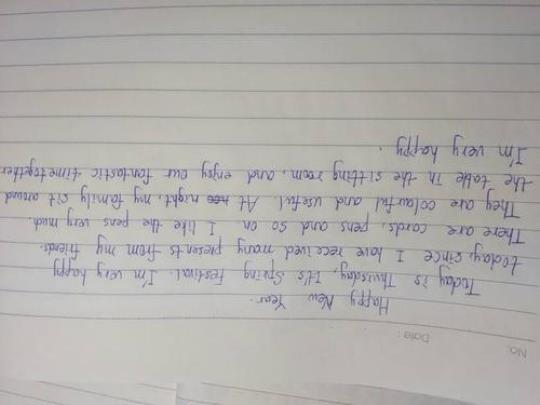 No.
Date:
Happy New Year.
Today is Thursday, It's Spring Festival. I'm very happy
today, since I have received many presents from my friends.
There are cards, pens and so on I like the pens very much.
They are colauful and useful. At noo night, my family sit around
the table in the sitting room, and enjoy our fantastic time together
I'm very happy.